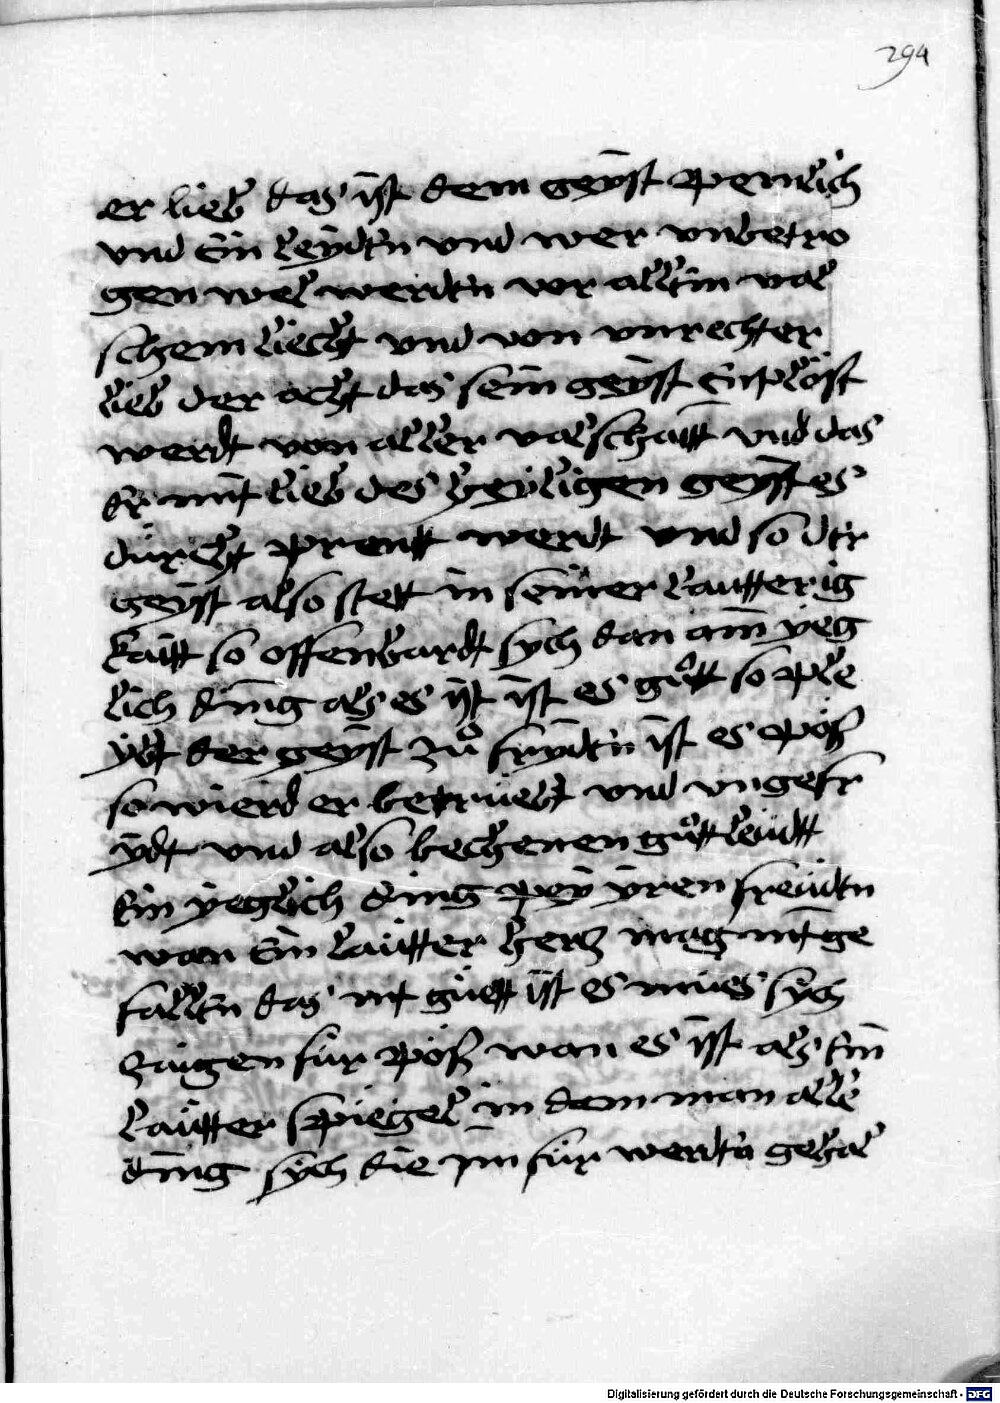 294
er lieb das ist dem geyst peinlich
vnd ein leydn vnd wer vnbetro
gen wel werdn vor allem val
schem liecht vnd von vnrechter
lieb der acht das sein geyst entplöst
werdt von aller valschaitt vnd das
er mit lieb des heyligen geystes
dürcht prentt werdt vnd so der
geyst also stett in seiner lautterig
kaitt so offenbardt sych dan aim yeg
lich ding als es ist ist es gůtt so ple
ybt der geyst zů frydn ist es pöß
so wierd er betruebt vnd vngefr
ydt vnd also bechenen gůtt leudtt
ein yeglich ding pey yren freudn
wan ein lautter hercz mag nit ge
falln das nit güett ist es mues sych
zaigen für pöß wan es ist als ein
lautter spiegel in dem man alle
ding sych die im für werdn gehal
Digitalisierung gefördert durch die Deutsche Forschungsgemeinschaft - DFG